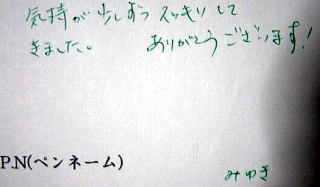 気持が少しずつスッキリして
きました。 ありがとうございます!
P.N(ペンネーム)
みゆき